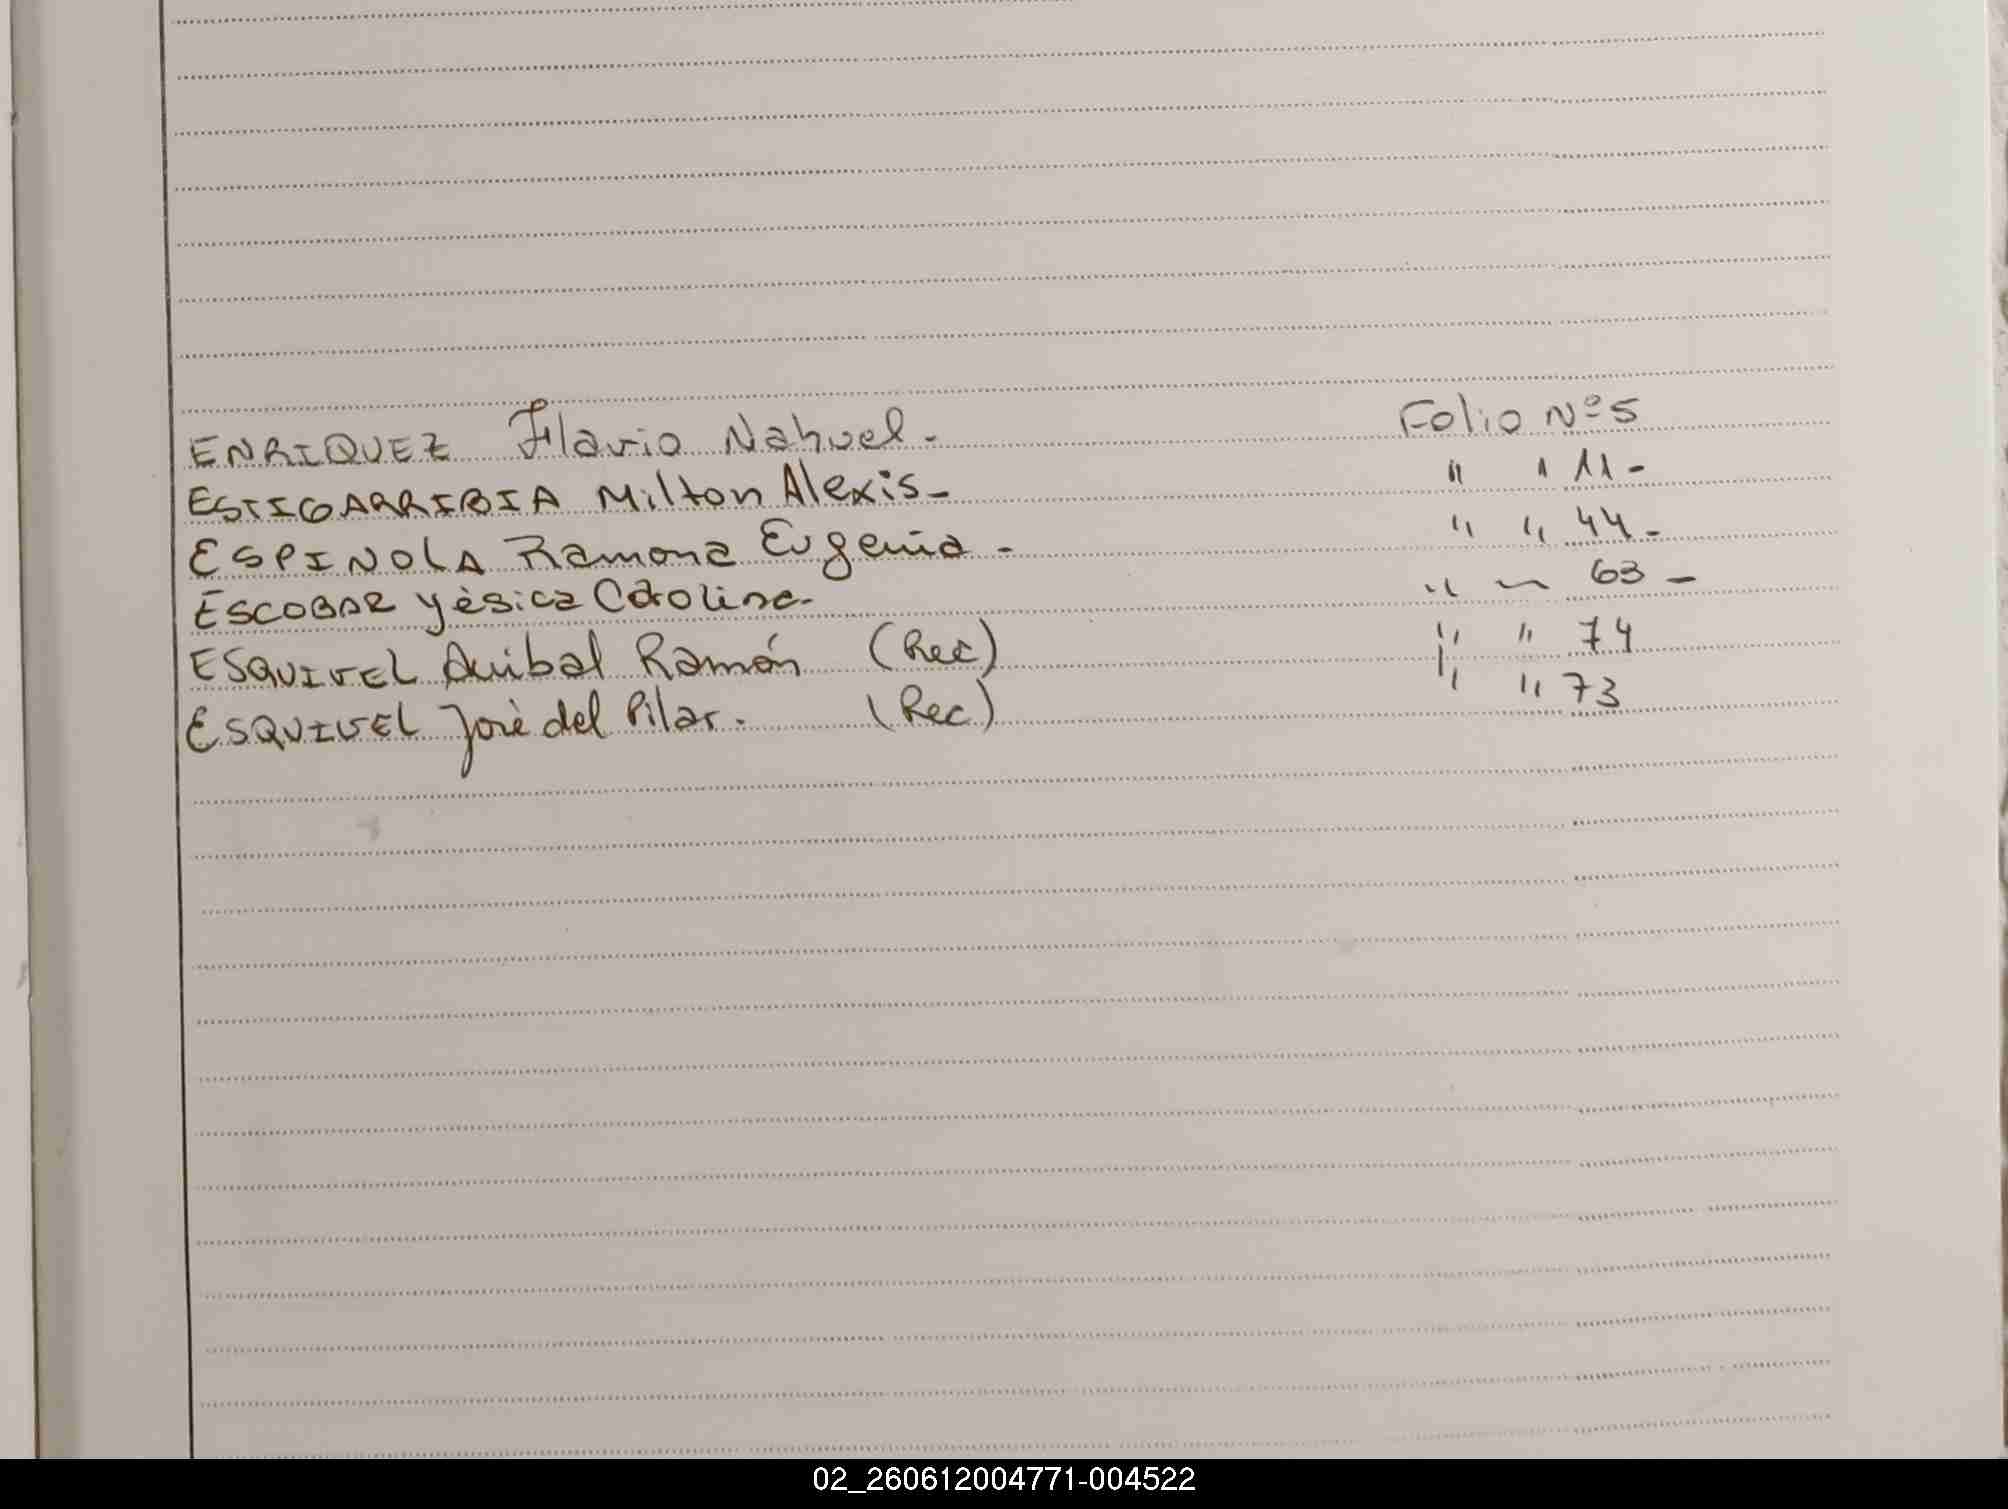 ENRIQUEZ Flavio Nahuel. Folio Nº 5
ESTIGARRIBIA Milton Alexis- " " 11-
ESPINOLA Ramona Eugenia- " " 44-
ESCOBAR Yèsica Carolina- " " 63-
ESQUIVEL Anibal Ramón (Rec) " " 74
ESQUIVEL Josè del Pilar. (Rec) " " 73
02_260612004771-004522